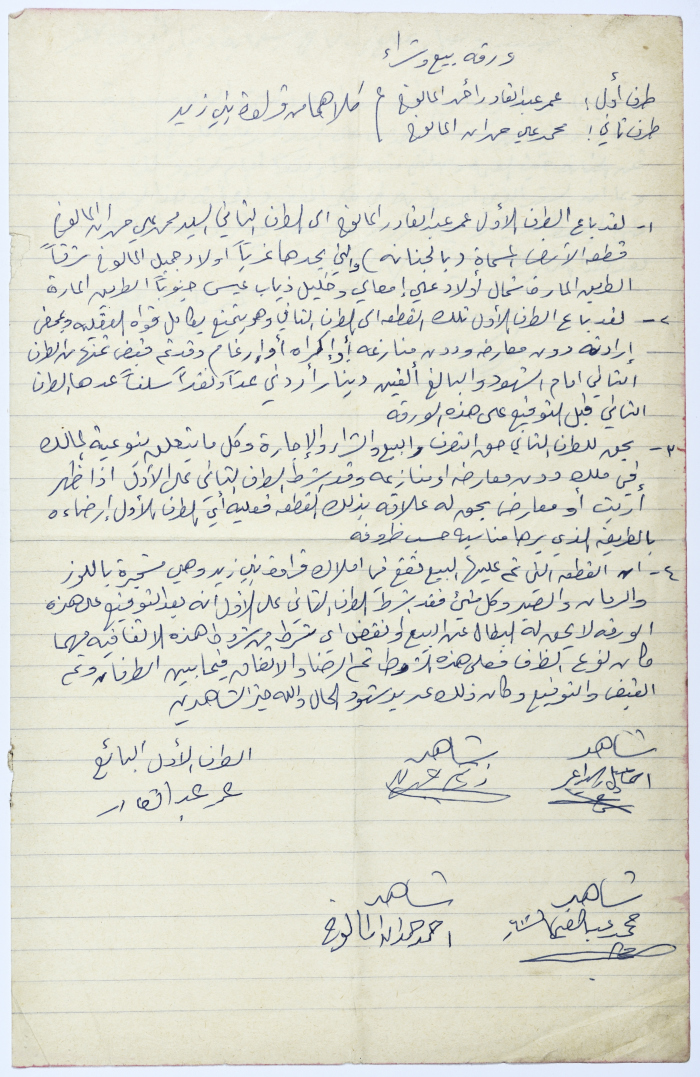 ورقه بيع وشراء
طرف أول : عمر عبد القادر أحمد المالوخ
طرف ثاني : محمد علي حمدان المالوخ
كلاهما من قراوة بني زيد
١- لقد باع الطرف الأول عمر عبد القادر المالوخ الى الطرف الثاني السيد محمد علي حمدان المالوخ
قطعه الأرض المسماة (بالجنانه) والتي يحدها غرباً اولاد جميل المالوخ شرقاً
الطريق المارة شمال أولاد علي وخليل ذياب عيسى جنوباً الطريق المارة
٢- لقد باع الطرف الأول تلك القطعه الى الطرف الثاني وهو يتمتع بكامل قواه العقليه وبمحض
إرادته دون معارضه ودون منازعه أو إكراه أو إرغام وقد تم قبض ثمنها من الطرف
الثاني امام الشهود والبالغ ألفين دينار أردني عداً ونقداً سلفاً عدها الطرف
الثاني قبل التوقيع على هذه الورقه
٣- يحق للطرف الثاني حق التصرف والبيع والشراء والإجارة وكل ما يتعلق بنوعية
في ملك دون معارضه او منازعه وقد شرط الطرف الثاني على الأول اذا ظهر
أو معارض يحق له علاقه بذلك القطعه فعليه أي الطرف الأول إرضاءه
بالطريقة الذي يرها مناسبه حسب ظروفه
٤- ان القطعه التي تم عليها البيع تقع في املاك قراوة بني زيد وهي مشجرة باللوز
والرمان والصبر وكل شيء فقد شرط الطرف الثاني على الأول أنه بعد التوقيع على هذه
الورقه لا يحق له ابطال عن البيع او نقض اي شرط من شروط هذه الاتفاقيه مهما
كان نوع الظرف فعلى هذه الشروط تم الرضا والاتفاق فيما بين الطرفان وتم
القبض والتوقيع وكان ذلك عن يد شهود الحال والله خير الشاهدين
شاهد شاهد الطرف الأول البائع
عمر عبد القادر
شاهد شاهد
محمد احمد حمدان المالوخ